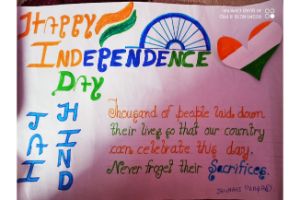 HAPPY
INDEPENDENCE
DAY
JAI
HIND
Thousand of people laid down
their lives so that our country
can celebrate this day.
Never forget their Sacrifices.